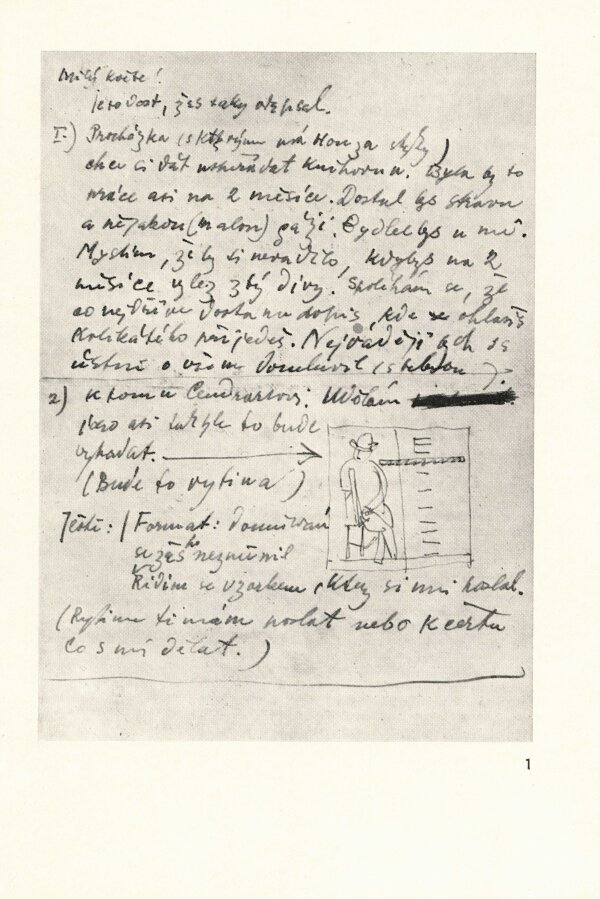 Milý Květe!
je to dost, žes taky odepsal.
I.) Procházka (s kterým má Honza styky)
chce si dát uspořádat knihovnu. Byla by to
práce asi na 2 měsíce. Dostal bys stravu
a nějakou (malou) gáži. Bydlel bys u mě.
Myslím, že by ti nevadilo, kdybys na 2
měsíce vylez z tý díry. Spoléhám se, že
co nejdříve dostanu dopis, kde ohlásíš
kolikátého přijedeš. Nejraději bych se
ústně o všem domluvil (s tebou).
2) K tomu Cendrarsovi: Udělám
jako asi takhle to bude
vypadat.
(Bude to rytina)
Ještě: Formát: doufám
se žes ho nezměnil
Řídím se vzorkem, který si mi poslal.
(Rytinu ti mám poslat nebo k čertu
co s ní dělat.)
1